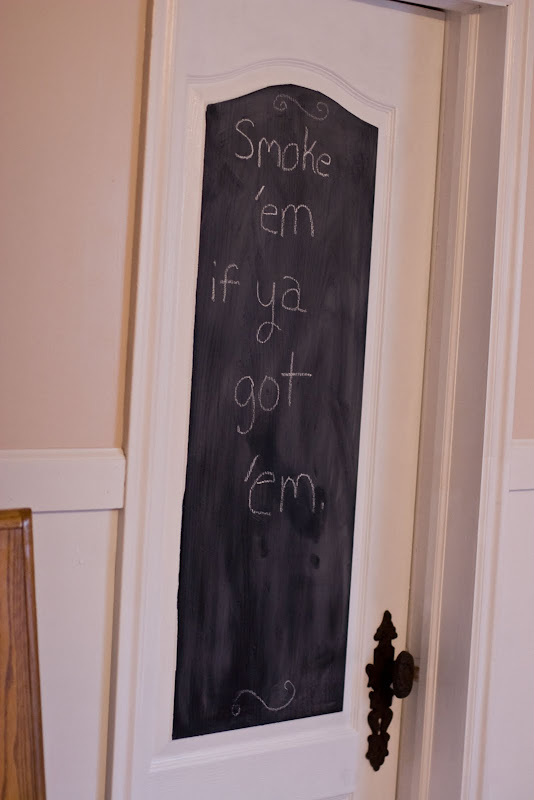 Smoke
'em
if ya
got
'em.